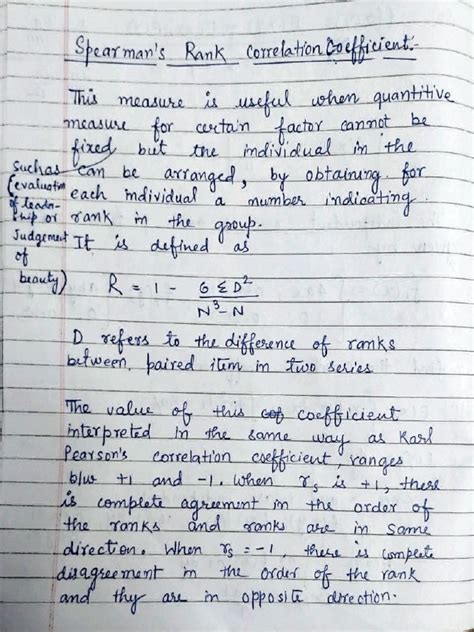 Spearman's Rank Correlation Coefficient:-
This measure is useful when quantitive
measure for certain factor cannot be
fixed but the individual in the
can be arranged, by obtaining for
each individual a number indicating
rank in the group.
Such as
(evaluation
of leader-
ship or
Judgement
of
beauty)
It is defined as
R = 1 - 6 Σ D²
N³ - N
D refers to the difference of ranks
between paired item in two series
The value of this coefficient
interpreted in the same way as Karl
Pearson's correlation coefficient, ranges
b/w +1 and -1. When rs is +1, there
is complete agreement in the order of
the ranks and ranks are in same
direction. When rs = -1, there is complete
disagreement in the order of the rank
and they are in opposite direction.